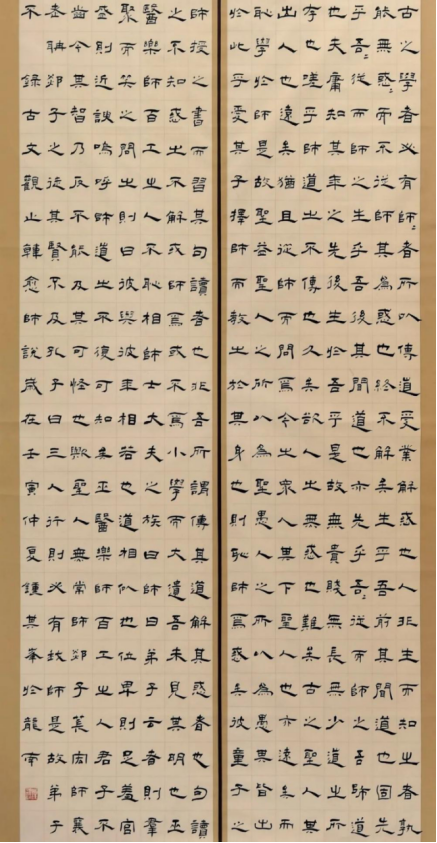 古之學者必有師〻者所以傳道受業解惑也人非生而知之者孰
能無惑〻而不從師其為惑也終不解矣生乎吾前其聞道也固先
乎吾〻從而師之生乎吾後其聞道也亦先乎吾〻從而師之吾師道
也夫庸知其年之先後生於吾乎是故無貴無賤無長無少道之所
存也嗟乎師道之不傳也久矣欲人之無惑也難矣古之聖人其
出人也遠矣猶且從師而問焉今之眾人其下聖人也亦遠矣而
恥學於師是故聖益聖人之所以為聖愚人之所以為愚其皆出
於此乎愛其子擇師而教之於其身也則恥師焉惑矣彼童子之
師授之書而習其句讀者也非吾所謂傳其道解其惑者也句讀
之不知惑之不解或師焉或不焉小學而大遺吾未見其明也巫
醫樂師百工之人不恥相師士大夫之族曰師曰弟子云者則羣
聚而笑之問之則曰彼與彼年相若也道相似也位卑則足羞官
盛則近諛嗚呼師道之不復可知矣巫醫樂師百工之人君子不
齒今其智乃反不能及其可怪也歟聖人無常師郯子萇弘師襄
老聃郯子之徒其賢不及孔子曰三人行則必有我師是故弟子
不
録古文觀止韓愈師說歲在壬寅仲夏鍾其峯於龍南